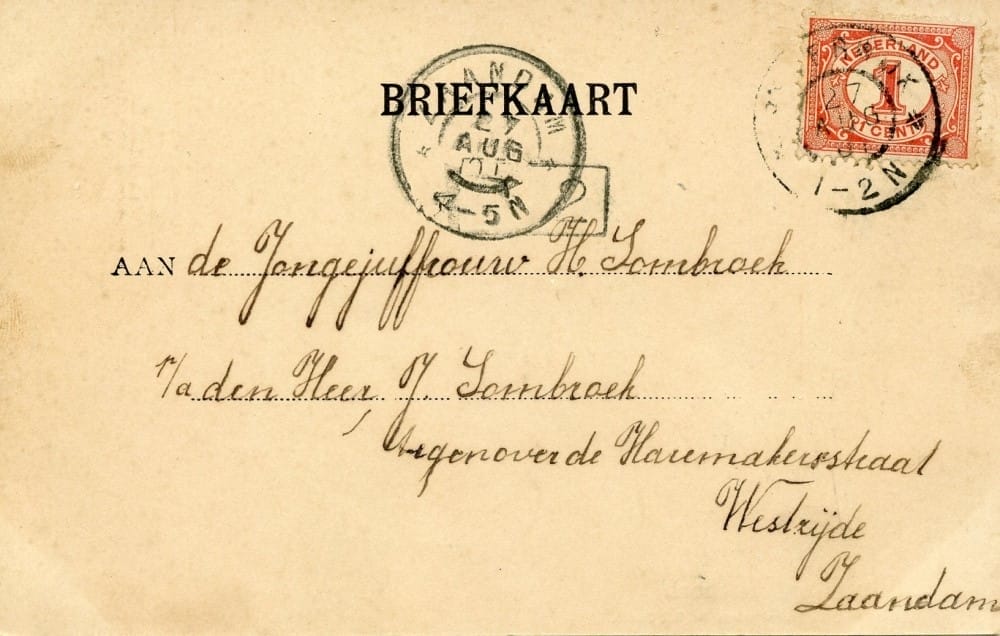 BRIEFKAART
NEDERLAND
1
CENT
ZAANDAM
27
AUG
4-5N
1-2N
AAN de Jongejuffrouw H. Sombroek
p/a den Heer, J. Sombroek
tegenover de Haremakersstraat
Westzijde
Zaandam